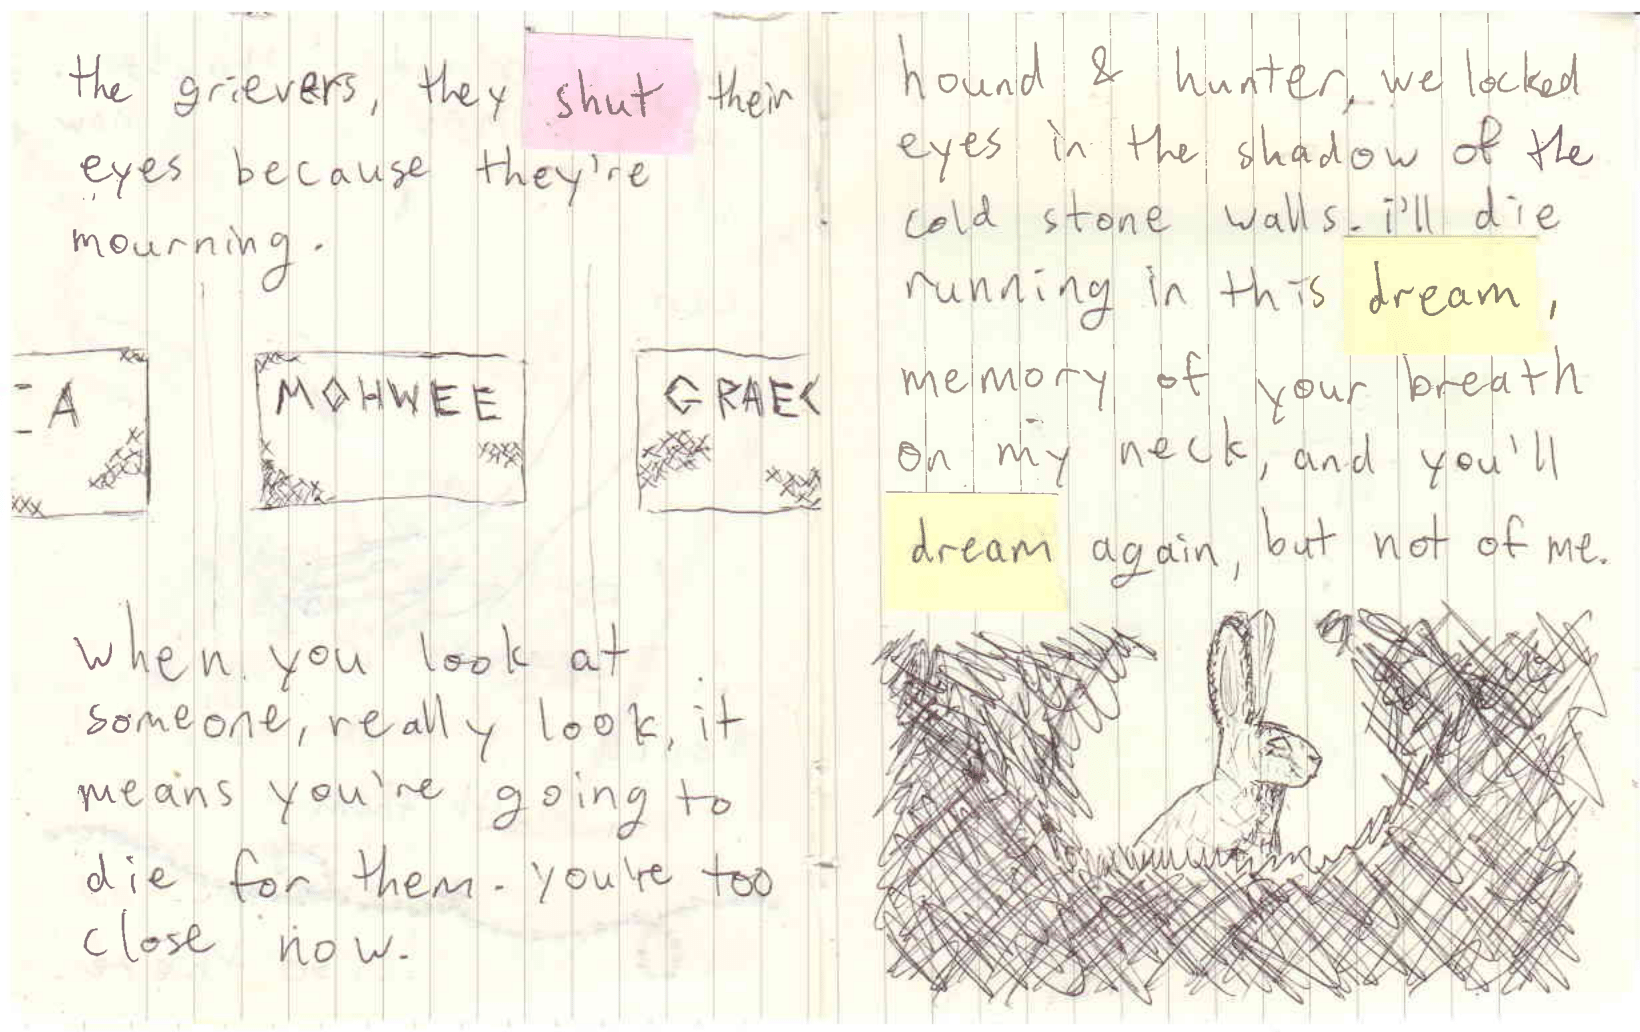 the grievers, they shut their
eyes because they're
mourning.
EA
MOHWEE
GRAEC
when you look at
someone, really look, it
means you're going to
die for them. you're too
close now.
hound & hunter, we locked
eyes in the shadow of the
cold stone walls. i'll die
running in this dream,
memory of your breath
on my neck, and you'll
dream again, but not of me.